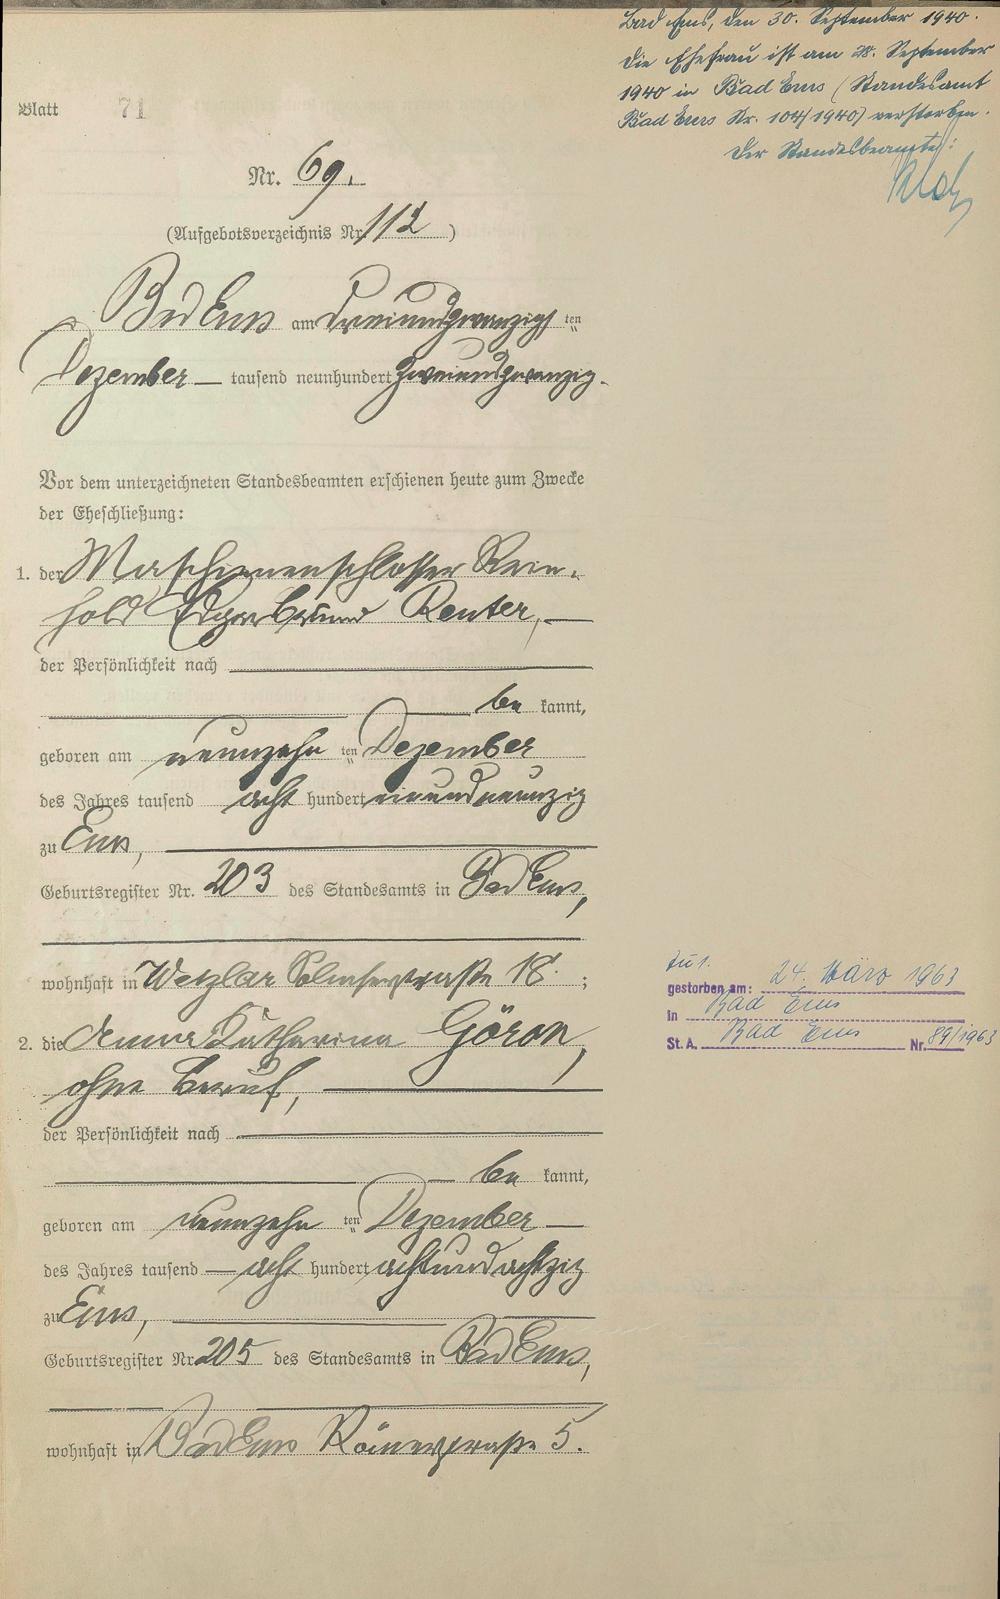 Bad Ems, den 30. September 1940.
Die Ehefrau ist am 28. September
1940 in Bad Ems (Standesamt
Bad Ems Nr. 104/1940) verstorben.
Der Standesbeamte:
Blatt 71
Nr. 69.
(Aufgebotsverzeichnis Nr. 112)
Bad Ems am dreiundzwanzigsten
Dezember — tausend neunhundert zweiundzwanzig.
Vor dem unterzeichneten Standesbeamten erschienen heute zum Zwecke
der Eheschließung:
1. der Maschinenschlosser Rein-
hold Edgar Reuter, —
der Persönlichkeit nach
be kannt,
geboren am neunzehnten Dezember
des Jahres tausend acht hundert einundneunzig
zu Ems,
Geburtsregister Nr. 203 des Standesamts in Bad Ems,
wohnhaft in Wetzlar Solmserstraße 18. ;
2. die Anna Katharina Göron,
ohne Beruf,
der Persönlichkeit nach
be kannt,
geboren am neunzehnten Dezember —
des Jahres tausend — acht hundert achtundachtzig
zu Ems,
Geburtsregister Nr. 205 des Standesamts in Bad Ems,
wohnhaft in Bad Ems Römerstraße 5.
zu 1.
gestorben am: 24. März 1963
in Bad Ems
St. A. Bad Ems Nr. 89/1963